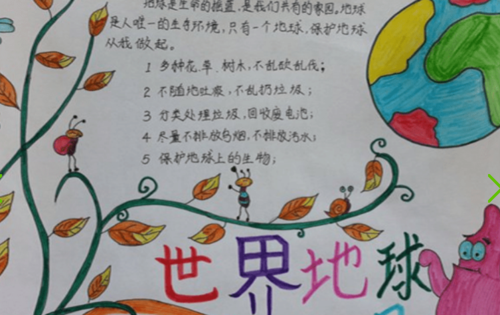 地球是生命的摇蓝,是我们共有的家园,地球
是人唯一的生存环境,只有一个地球,保护地球
从我做起。
1 多种花、草、树木,不乱砍乱伐;
2 不随地吐痰,不乱扔垃圾;
3 分类处理垃圾,回收废电池;
4 尽量不排放乌烟,不排放污水;
5 保护地球上的生物;
世界地球